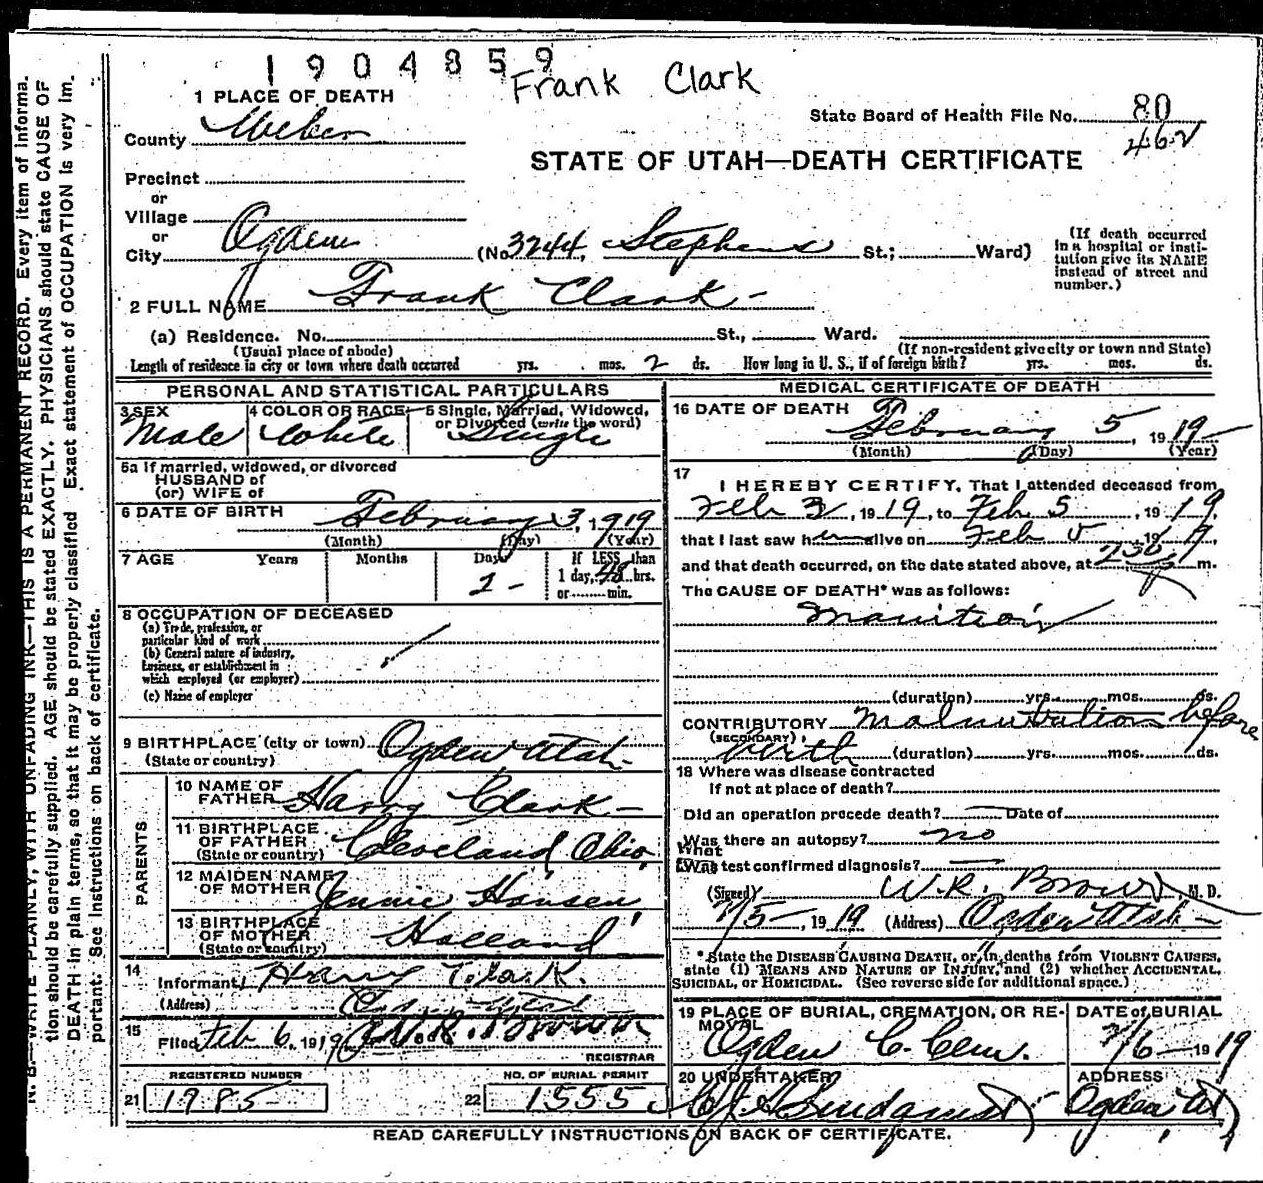 1904859
Frank Clark
1 PLACE OF DEATH
State Board of Health File No. 80
462
County Weber
STATE OF UTAH—DEATH CERTIFICATE
Precinct
or
Village
or
City Ogden (No 3244, Stephens St.; Ward)
(If death occurred in a hospital or insti-
tution give its NAME
instead of street and
number.)
2 FULL NAME Frank Clark
(a) Residence. No. St., Ward.
(Usual place of abode) (If non-resident give city or town and State)
Length of residence in city or town where death occurred yrs. mos. 2 ds. How long in U. S., if of foreign birth? yrs. mos. ds.
PERSONAL AND STATISTICAL PARTICULARS
3 SEX 4 COLOR OR RACE 5 Single, Married, Widowed,
or Divorced (write the word)
Male White Single
5a If married, widowed, or divorced
HUSBAND of
(or) WIFE of
6 DATE OF BIRTH February 3, 1919
(Month) (Day) (Year)
7 AGE Years Months Days If LESS than
2 - 1 day, 48 hrs.
or min.
8 OCCUPATION OF DECEASED
(a) Trade, profession, or
particular kind of work
(b) General nature of industry,
business, or establishment in
which employed (or employer)
(c) Name of employer
9 BIRTHPLACE (city or town) Ogden Utah
(State or country)
PARENTS
10 NAME OF
FATHER Harry Clark
11 BIRTHPLACE
OF FATHER Cleveland Ohio
(State or country)
12 MAIDEN NAME
OF MOTHER Jennie Hansen
13 BIRTHPLACE
OF MOTHER Holland
(State or country)
14
Informant Harry Clark
(Address)
15
Filed Feb 6, 1919 W.R. Brown
REGISTRAR
REGISTERED NUMBER NO. OF BURIAL PERMIT
21 1985 22 1555
MEDICAL CERTIFICATE OF DEATH
16 DATE OF DEATH
February 5, 1919
(Month) (Day) (Year)
17
I HEREBY CERTIFY, That I attended deceased from
Feb 3, 1919, to Feb 5, 1919,
that I last saw him alive on Feb 5, 1919,
and that death occurred, on the date stated above, at 230 m.
The CAUSE OF DEATH* was as follows:
(duration) yrs. mos. ds.
CONTRIBUTORY Malnutrition before
(SECONDARY)
birth (duration) yrs. mos. ds.
18 Where was disease contracted
If not at place of death?
Did an operation procede death? Date of
Was there an autopsy? no
What
Was test confirmed diagnosis?
(Signed) W.R. Brown M. D.
2/5 - 1919 (Address) Ogden Utah
*State the DISEASE CAUSING DEATH, or, in deaths from VIOLENT CAUSES,
state (1) MEANS AND NATURE OF INJURY, and (2) whether ACCIDENTAL,
SUICIDAL, or HOMICIDAL. (See reverse side for additional space.)
19 PLACE OF BURIAL, CREMATION, OR RE-
MOVAL
Ogden C. Cem.
DATE of BURIAL
2/6 - 1919
20 UNDERTAKER
ADDRESS
Ogden, Ut
READ CAREFULLY INSTRUCTIONS ON BACK OF CERTIFICATE.
N. B.—WRITE PLAINLY, WITH UNFADING INK—THIS IS A PERMANENT RECORD. Every item of informa-
tion should be carefully supplied. AGE should be stated EXACTLY. PHYSICIANS should state CAUSE OF
DEATH in plain terms, so that it may be properly classified. Exact statement of OCCUPATION is very im-
portant. See Instructions on back of certificate.